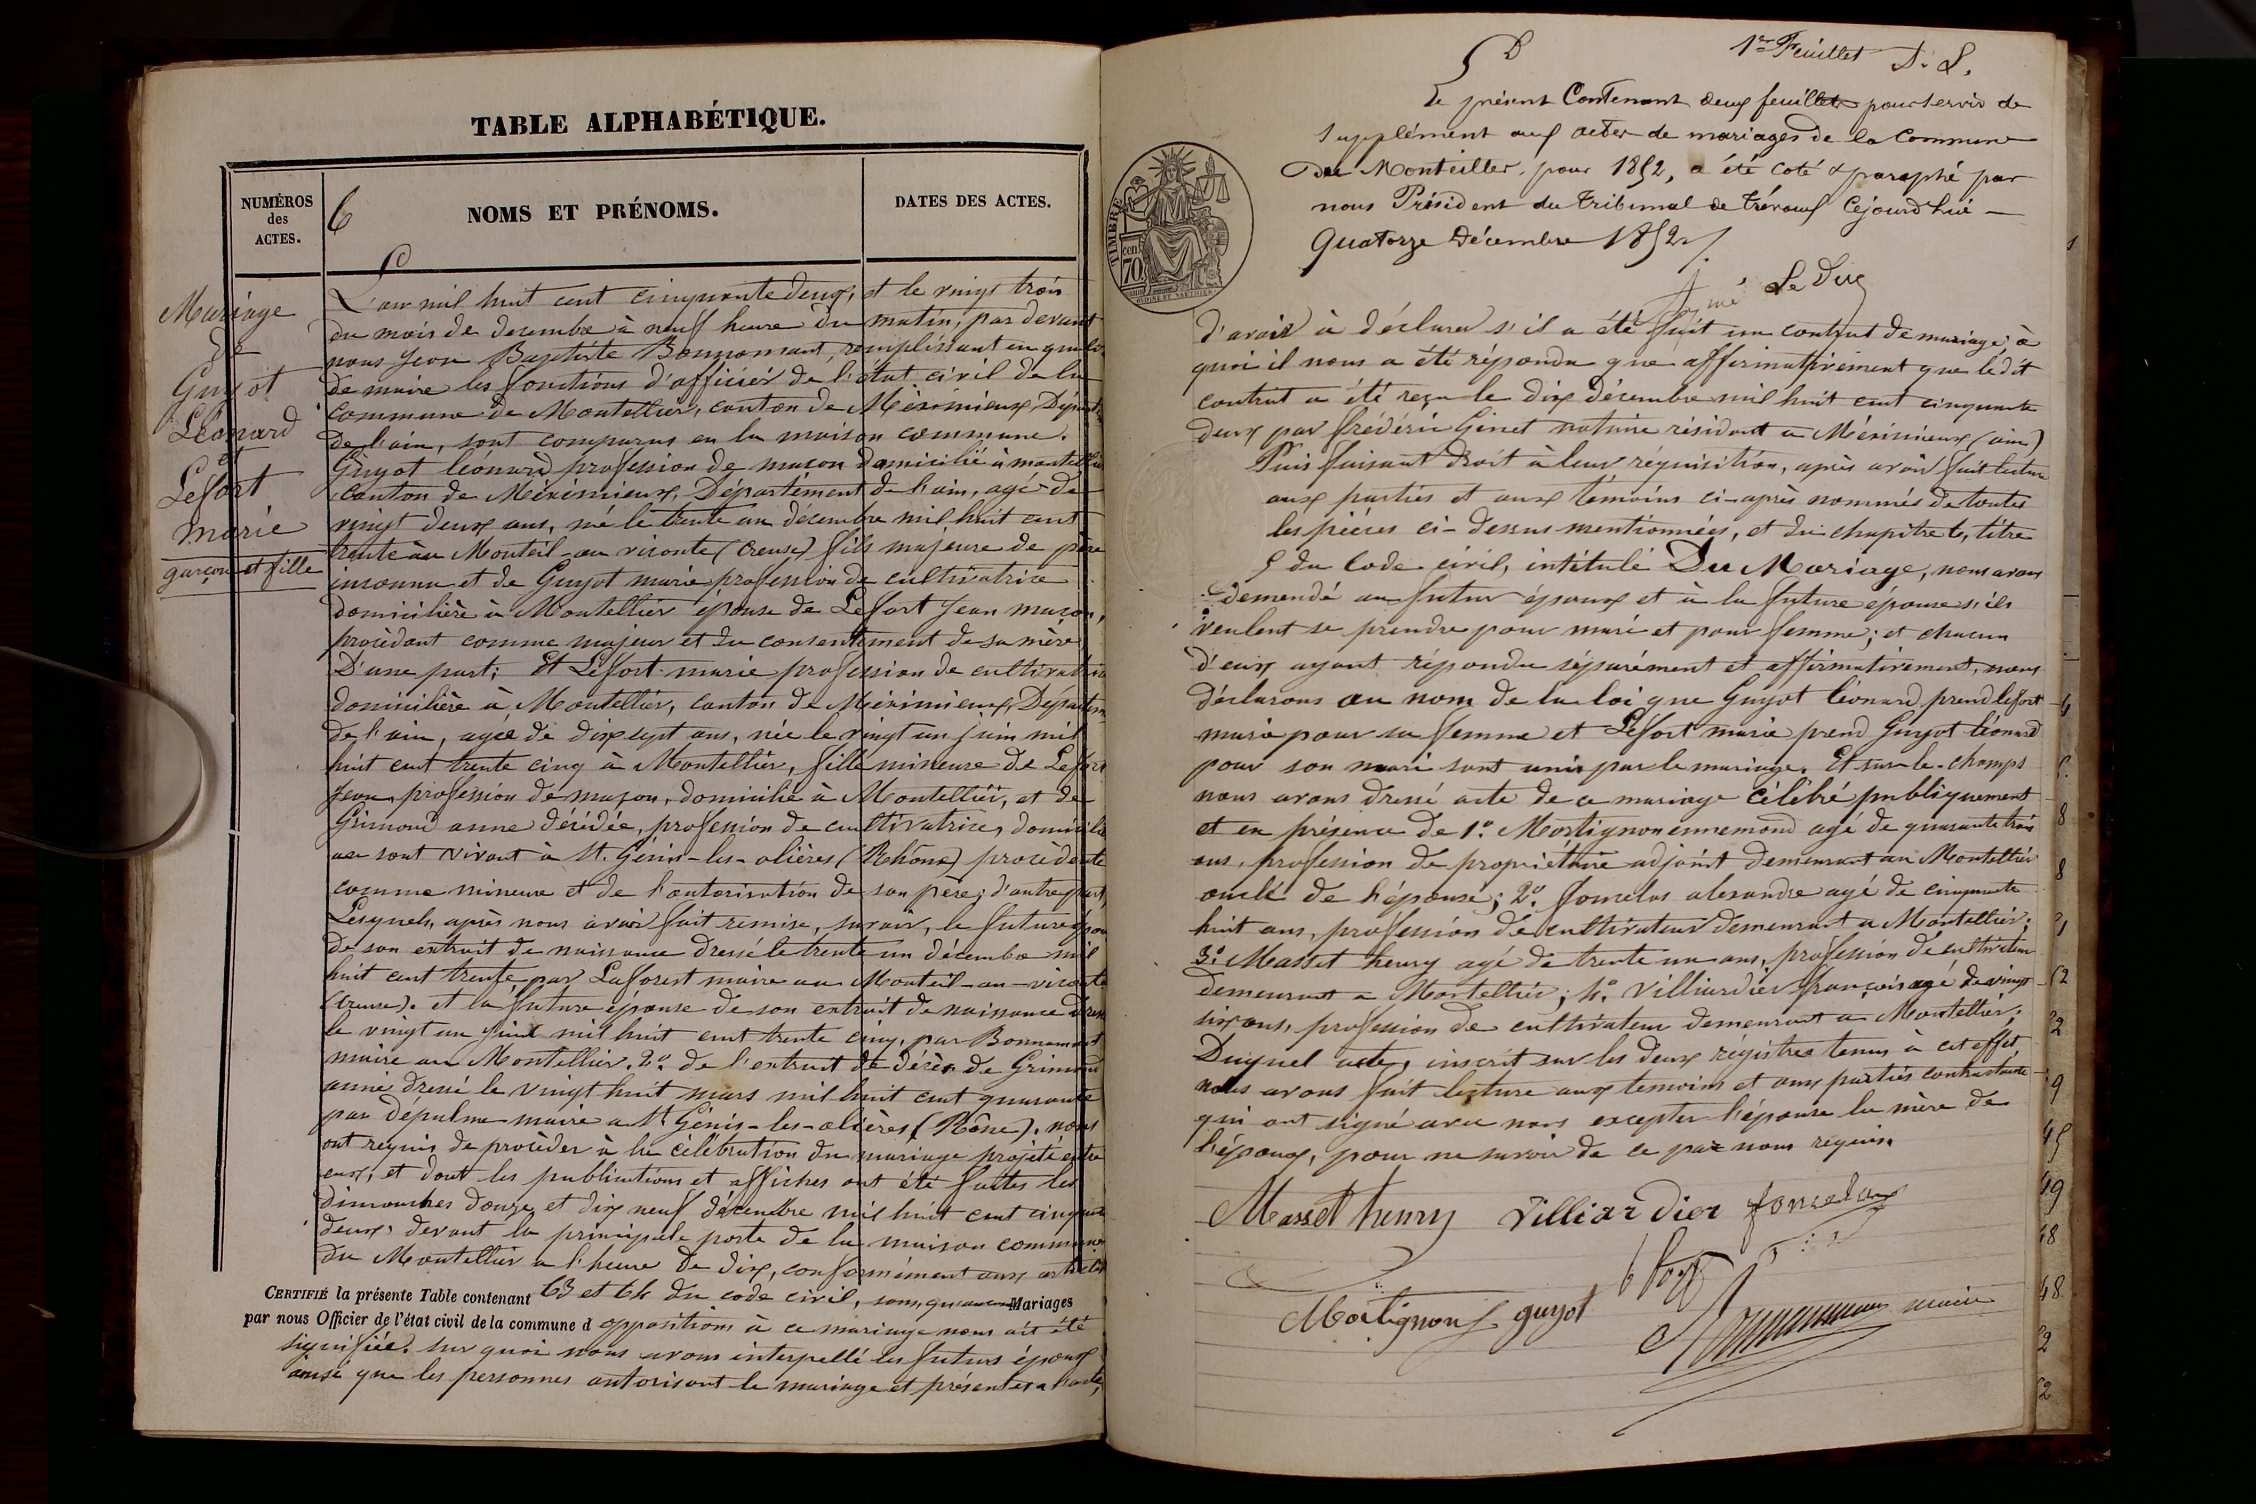 TABLE ALPHABÉTIQUE.
NUMÉROS
des
ACTES.
6
NOMS ET PRÉNOMS.
DATES DES ACTES.
Mariage
de
Guyot
Léonard
et
Lefort
marie
garçon et fille
L'an mil huit cent cinquante deux, et le vingt trois
du mois de decembre à neuf heure du matin, par devant
nous Jean Baptiste Bonnamant, remplissant en qualité
de maire les fonctions d'officier de l'état civil de la
commune de Montellier, canton de Méximieux, Départ.
de l'ain, sont comparus en la maison commune.
Guyot léonard profession de maçon domicilié à montellier
canton de Méximieux, Département de l'ain, agé de
vingt deux ans, né le trente un décembre mil huit cent
trente au Monteil-au-viconte (Creuse) fils majeure de père
inconnu et de Guyot marie profession de cultivatrice
domicilière à Montellier épouse de Lefort Jean maçon,
procédant comme majeur et du consentement de sa mère
D'une part; Et Lefort marie profession de cultivatrice
domicilière à Montellier, canton de Méximieux, Départem
de l'ain, agée de dix sept ans, née le vingt un juin mil
huit cent trente cinq à Montellier, fille mineure de Lefort
Jean, profession de maçon, domicilié à Montellier, et de
Grimond anne décédée, profession de cultivatrice, domicilié
de sont vivant à St. Génis-les-olières (Rhône) procèdente
comme mineure et de l'autorisation de son père; d'autre part,
Lesquels, après nous avoir fait remise, savoir, le futur époux
de son extrait de naissance dressé le trente un décembre mil
huit cent trente, par Laforest maire au Monteil-au-viconte
(creuse). et la future épouse de son extrait de naissance dressé
le vingt un juin mil huit cent trente cinq, par Bonnamant
maire au Montellier. 2º. de l'extrait de décès de Grimond
anne dressé le vingt huit mars mil huit cent quarante
par Dépulme maire a St. Génis-les-olières (Rône). nous
ont requis de procéder à la célébration du mariage projeté entre
eux, et dont les publications et affiches ont été faites les
dimanches douze et dix neuf décembre mil huit cent cinquante
deux, devant la principale porte de la maison commune
du Montellier a l'heure de dix, conformément aux articles
CERTIFIÉ la présente Table contenant 63 et 64 du code civil, sans, qu'aucune Mariages
par nous Officier de l'état civil de la commune d oppositions à ce mariage nous ait été
signifiée. sur quoi nous avons interpellé les futurs époux
ainsi que les personnes autorisant le mariage et présentes a l'acte,
1er Feuillet D. L.
Le présent Contenant deux feuillets pour servir de
supplément aux actes de mariages de la Commune
du Monteiller, pour 1852, a été coté & paraphé par
nous Président du tribunal de Trévoux Cejourd'hui
Quatorze Décembre 1852
Signé Le Duc
TIMBRE
cen
70
d'avoir à déclarer s'il a été fait un contrat de mariage, à
quoi il nous a été répondu que affirmativement que ledit
contrat a été reçu le dix décembre mil huit cent cinquante
deux par frédéric Génet notaire résidant a Méximieux (ain)
Puis faisant droit à leur réquisition, après avoir fait lecture
aux parties et aux témoins ci-après nommés de toutes
les pièces ci-dessus mentionnées, et du chapitre 6, titre
5 du Code civil, intitulé Du Mariage, nous avons
demandé au futur époux et à la future épouse s'ils
veulent se prendre pour mari et pour femme; et chacun
d'eux ayant répondu séparément et affirmativement, nous
déclarons au nom de la loi que Guyot léonard prend lefort
marie pour sa femme et Lefort marie prend Guyot léonard
pour son mari sont unis par le mariage. Et sur-le-champs
nous avons dressé acte de ce mariage célébré publiquement
et en présence de 1º. Mortignon ennemond agé de quarante trois
ans, profession de propriétaire adjoint demeurant au Montellier
oncle de l'épouse; 2º. fonselas alexandre agé de cinquante
huit ans, profession de cultivateur demeurant a Montellier;
3º. Masset henry agé de trente un ans, profession de cultivateur
demeurant a Montellier; 4º. Villiardier françois agé de vingt
six ans, profession de cultivateur demeurant a Montellier.
Duquel acte, inscrit sur les deux régistres tenus à cet effet
nous avons fait lecture aux temoins et aux parties contractante
qui ont signé avec nous excepter l'épouse la mère de
l'époux, pour ne savoir de ce par nous requis.
Masset henry Villiardier fonselas
Mortignon guyot
Bonnamant maire